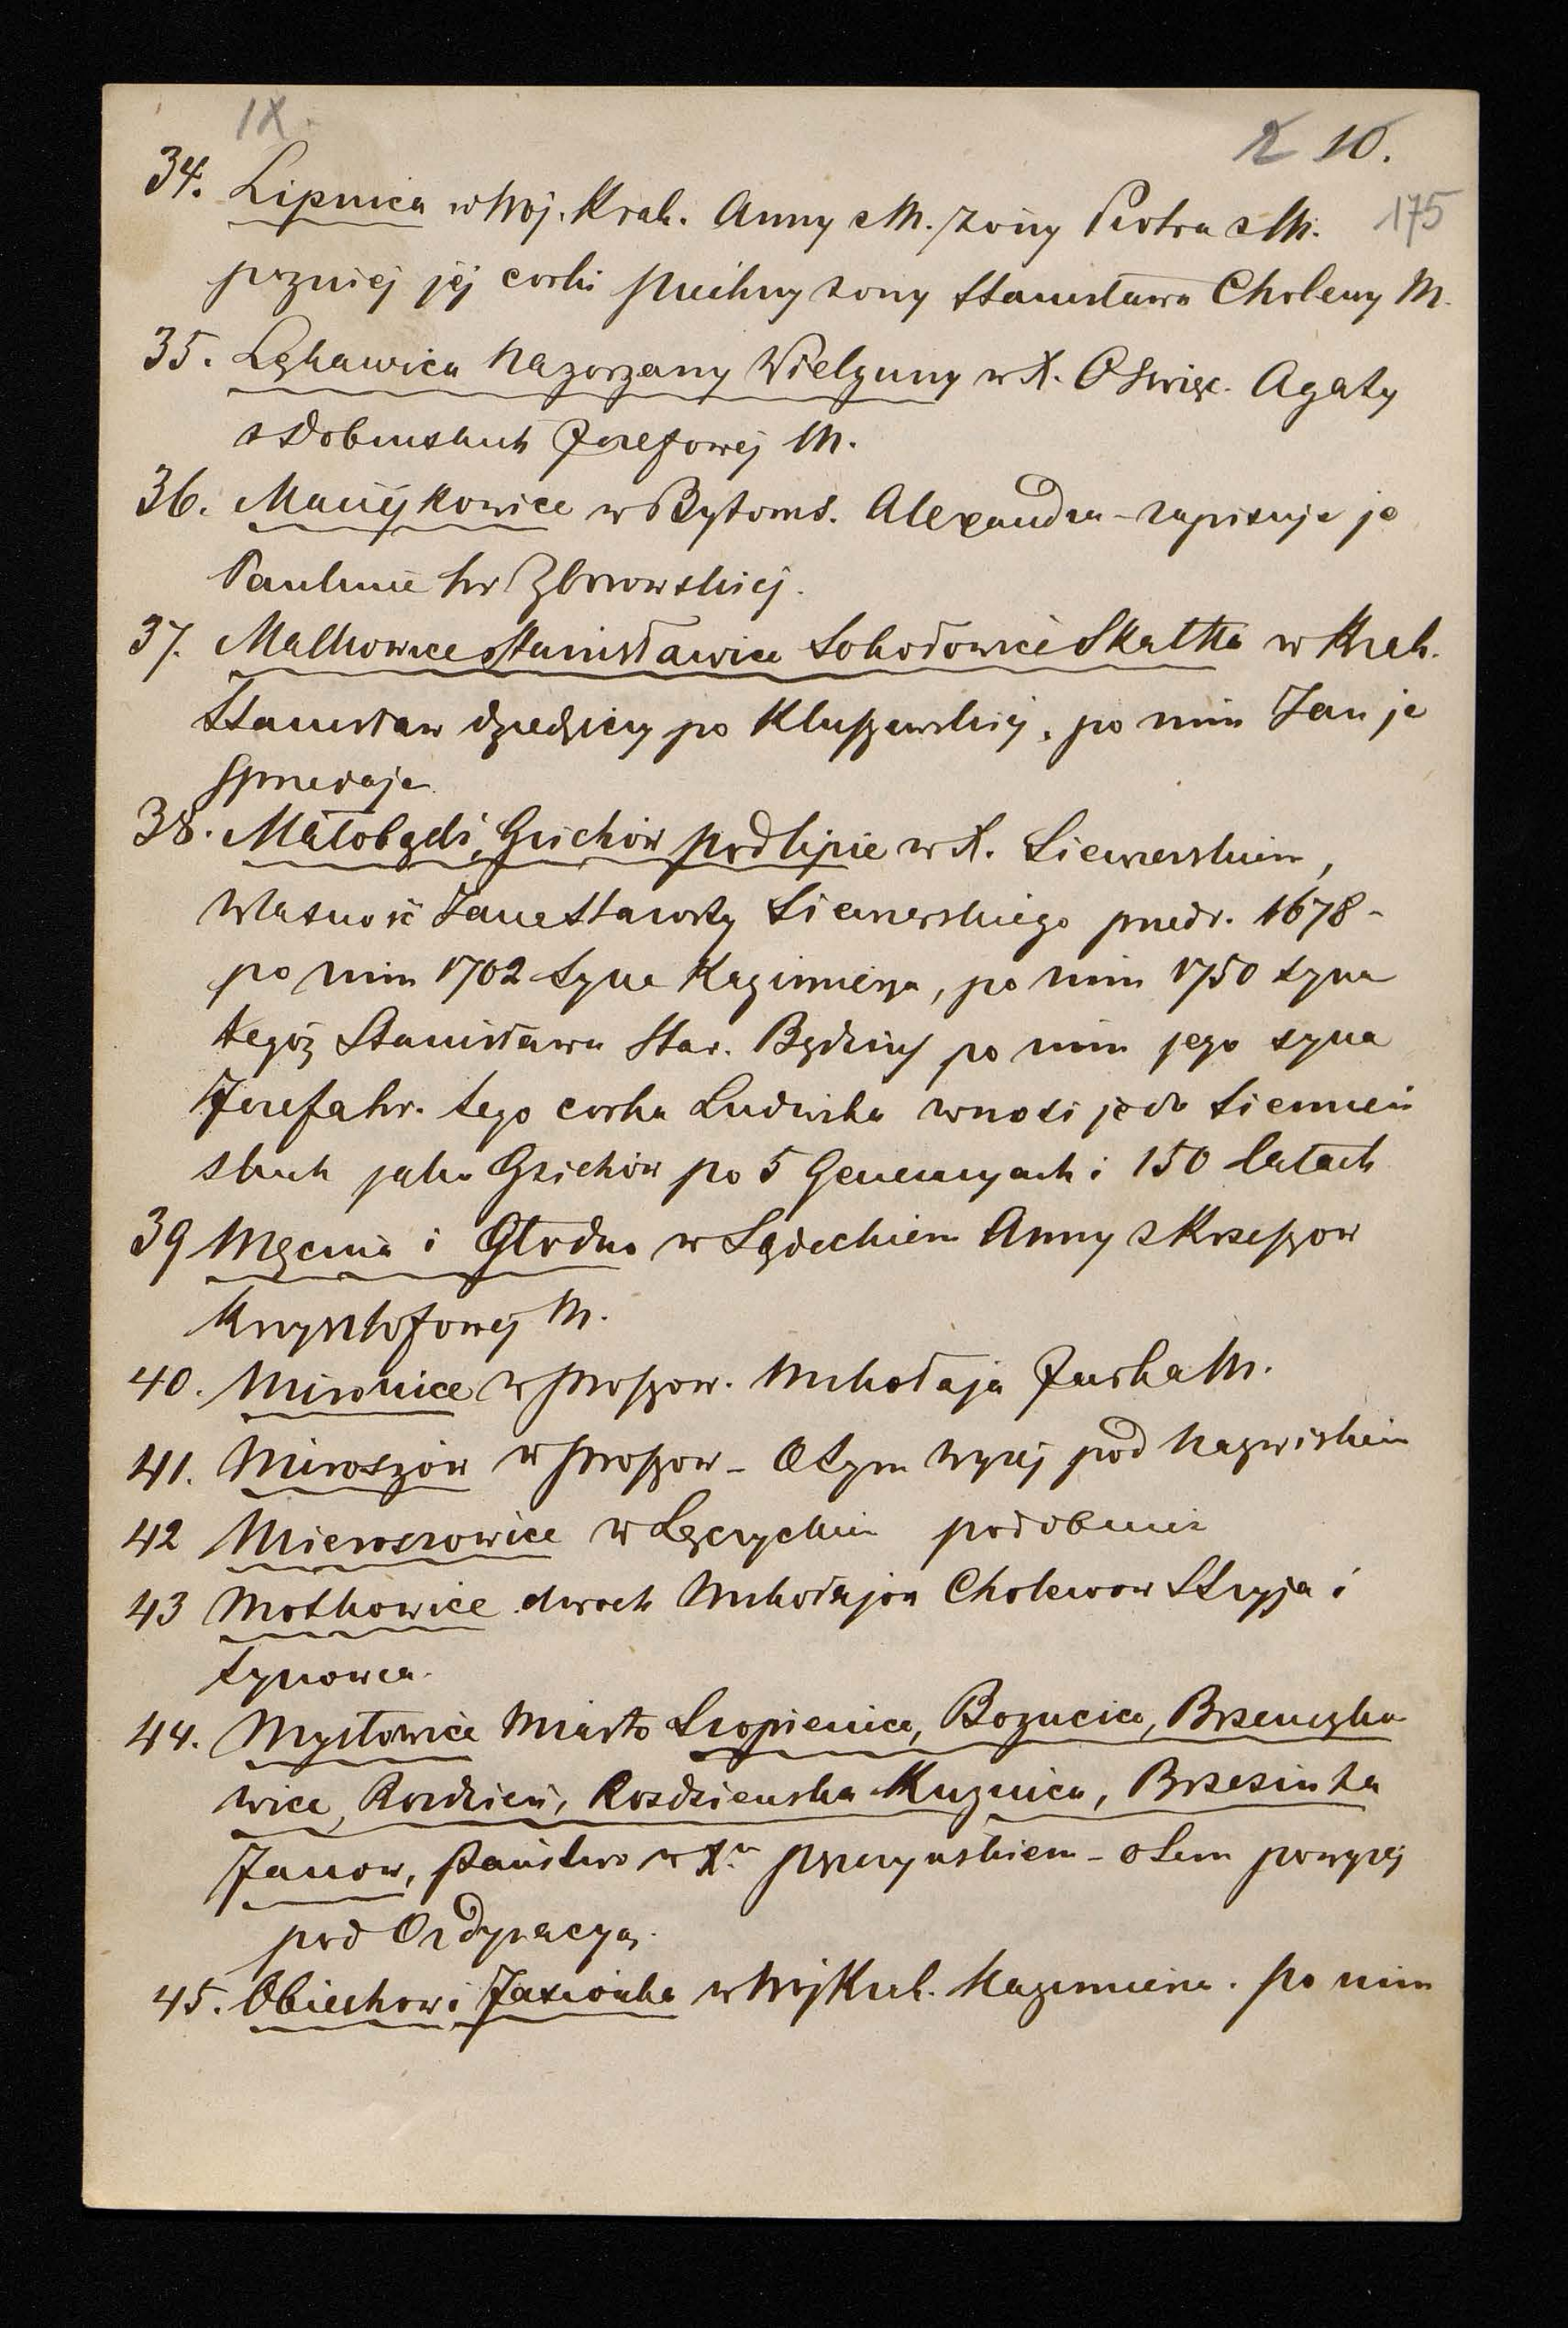 IX.
2 10.
175
34. Lipnica w Woj. Krak. Anny z M. żony Piotra z M.
pozniej jéj corki żony Stanisława Cholewy M.
35. Łękawica Nagorzany Wielguny w X. Oświęc. Agaty
z Dobinskich Jozefowéj M.
36. Maciejkowice w Bytoms. Alexandra - zapisuje je
Paulinie hr Zborowskiej.
37. Malkowice Stanisławice Sokołowice Skałka w Krak.
Stanisław dziedziczy po Kluszewskiej, po nim Jan je
sprzedaje
38. Małobądź, Gzichów, podlipie w X. Siewierskiem,
własność Jana Starosty Siewierskiego przedr. 1678 -
po nim 1702 syna Kazimierza, po nim 1750 syna
tegoż Stanisława Star. Będzińs po nim jego syna
Jozefa hr. tego corka Ludwika wnosi je do Siemień
skich jako Gzichów po 5 Generacyach i 150 latach
39 Męcina i Głodna w Sądeckiem Anny z Krzeszow
Krzysztofowéj M.
40. Mironice w Proszow. Mikołaja Jurka M.
41. Miroszów w Proszow - O tym wyżéj pod Nazwiskiem
42 Mieroszowice w Łęczyckim podobnie
43 Motkowice dwoch Mikołajow Cholewow Stryja i
Synowca.
44. Mysłowice Miasto Szopienice, Bogucice, Brzenczko
wice, Rozdzień, Rozdzienska Kuznica, Brzezinka
Janow, Państwo w Xie Pszczynskiem - o tem powyżéj
pod Ordynacyą.
45. Obiechow i Jaxionka w Woj Krak. Kazimierza. po nim